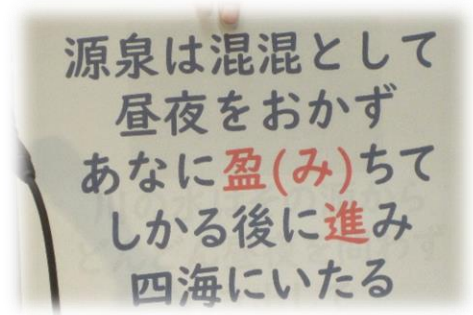 源泉は混混として
昼夜をおかず
あなに盈(み)ちて
しかる後に進み
四海にいたる